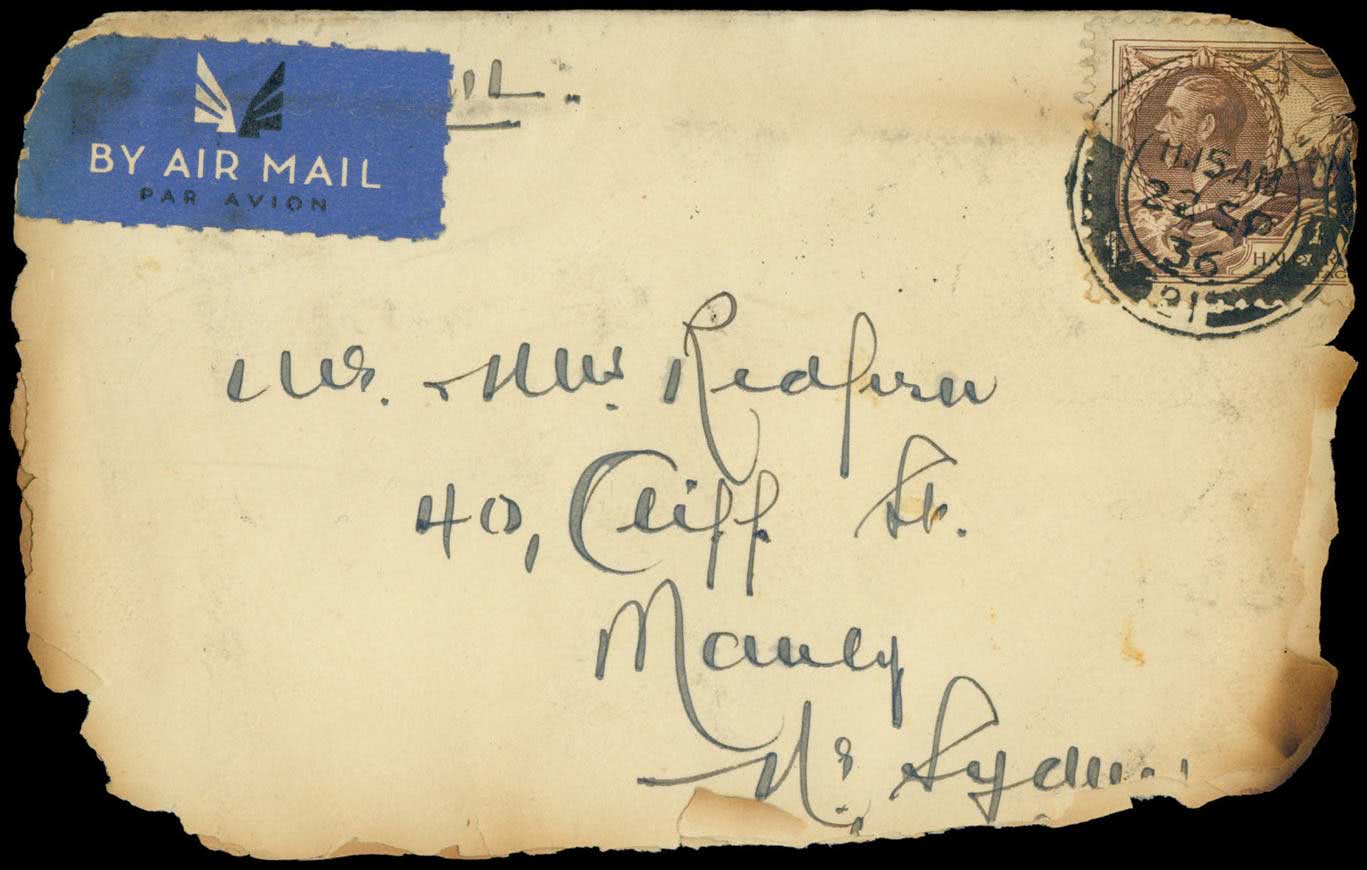 BY AIR MAIL
PAR AVION
11.15 AM
22 SP
36
21
HALF
Mr. Mrs. Redfern
40, Cliff St.
Manly
Nr. Sydn